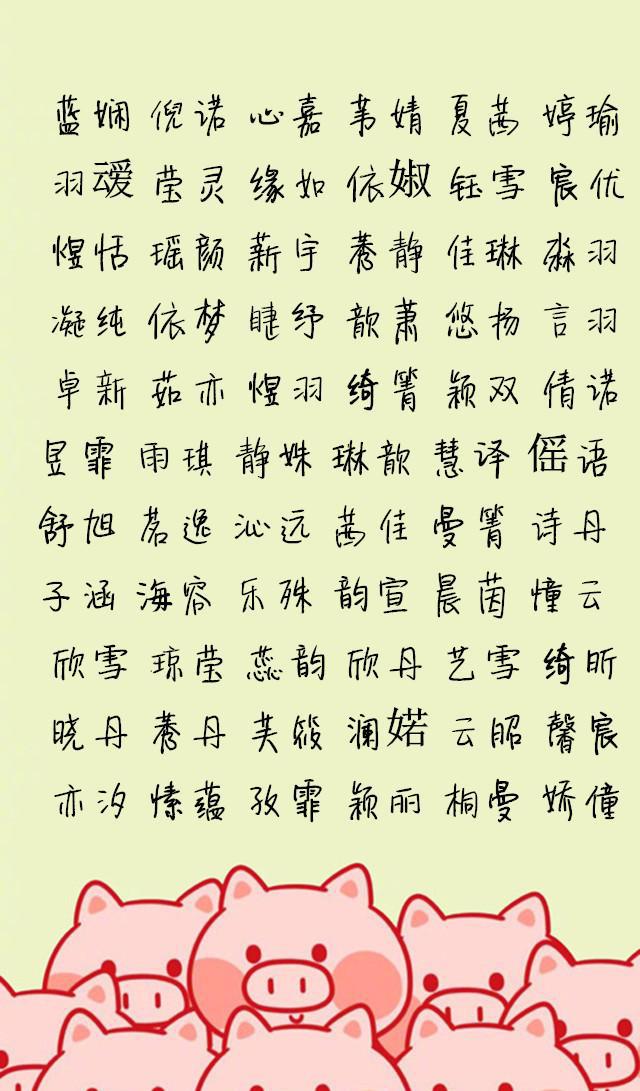 蓝娴 倪诺 心嘉 苇婧 夏茜 婷瑜
羽叆 莹灵 缘如 依婌 钰雪 宸优
煜恬 瑶颜 薪宇 骞静 佳琳 淼羽
凝纯 依梦 睫纾 歆萧 悠扬 言羽
卓新 茹亦 煜羽 绮箐 颖双 倩诺
昱霏 雨琪 静姝 琳歆 慧译 傜语
舒旭 茗逸 沁远 茜佳 曼箐 诗丹
子涵 海容 乐殊 韵宣 晨茵 憧云
欣雪 琼莹 蕊韵 欣丹 艺雪 绮昕
晓丹 丹 芙筱 澜婼 云昭 馨宸
亦汐 愫蕴 孜霏 颖丽 桐曼 娇僮